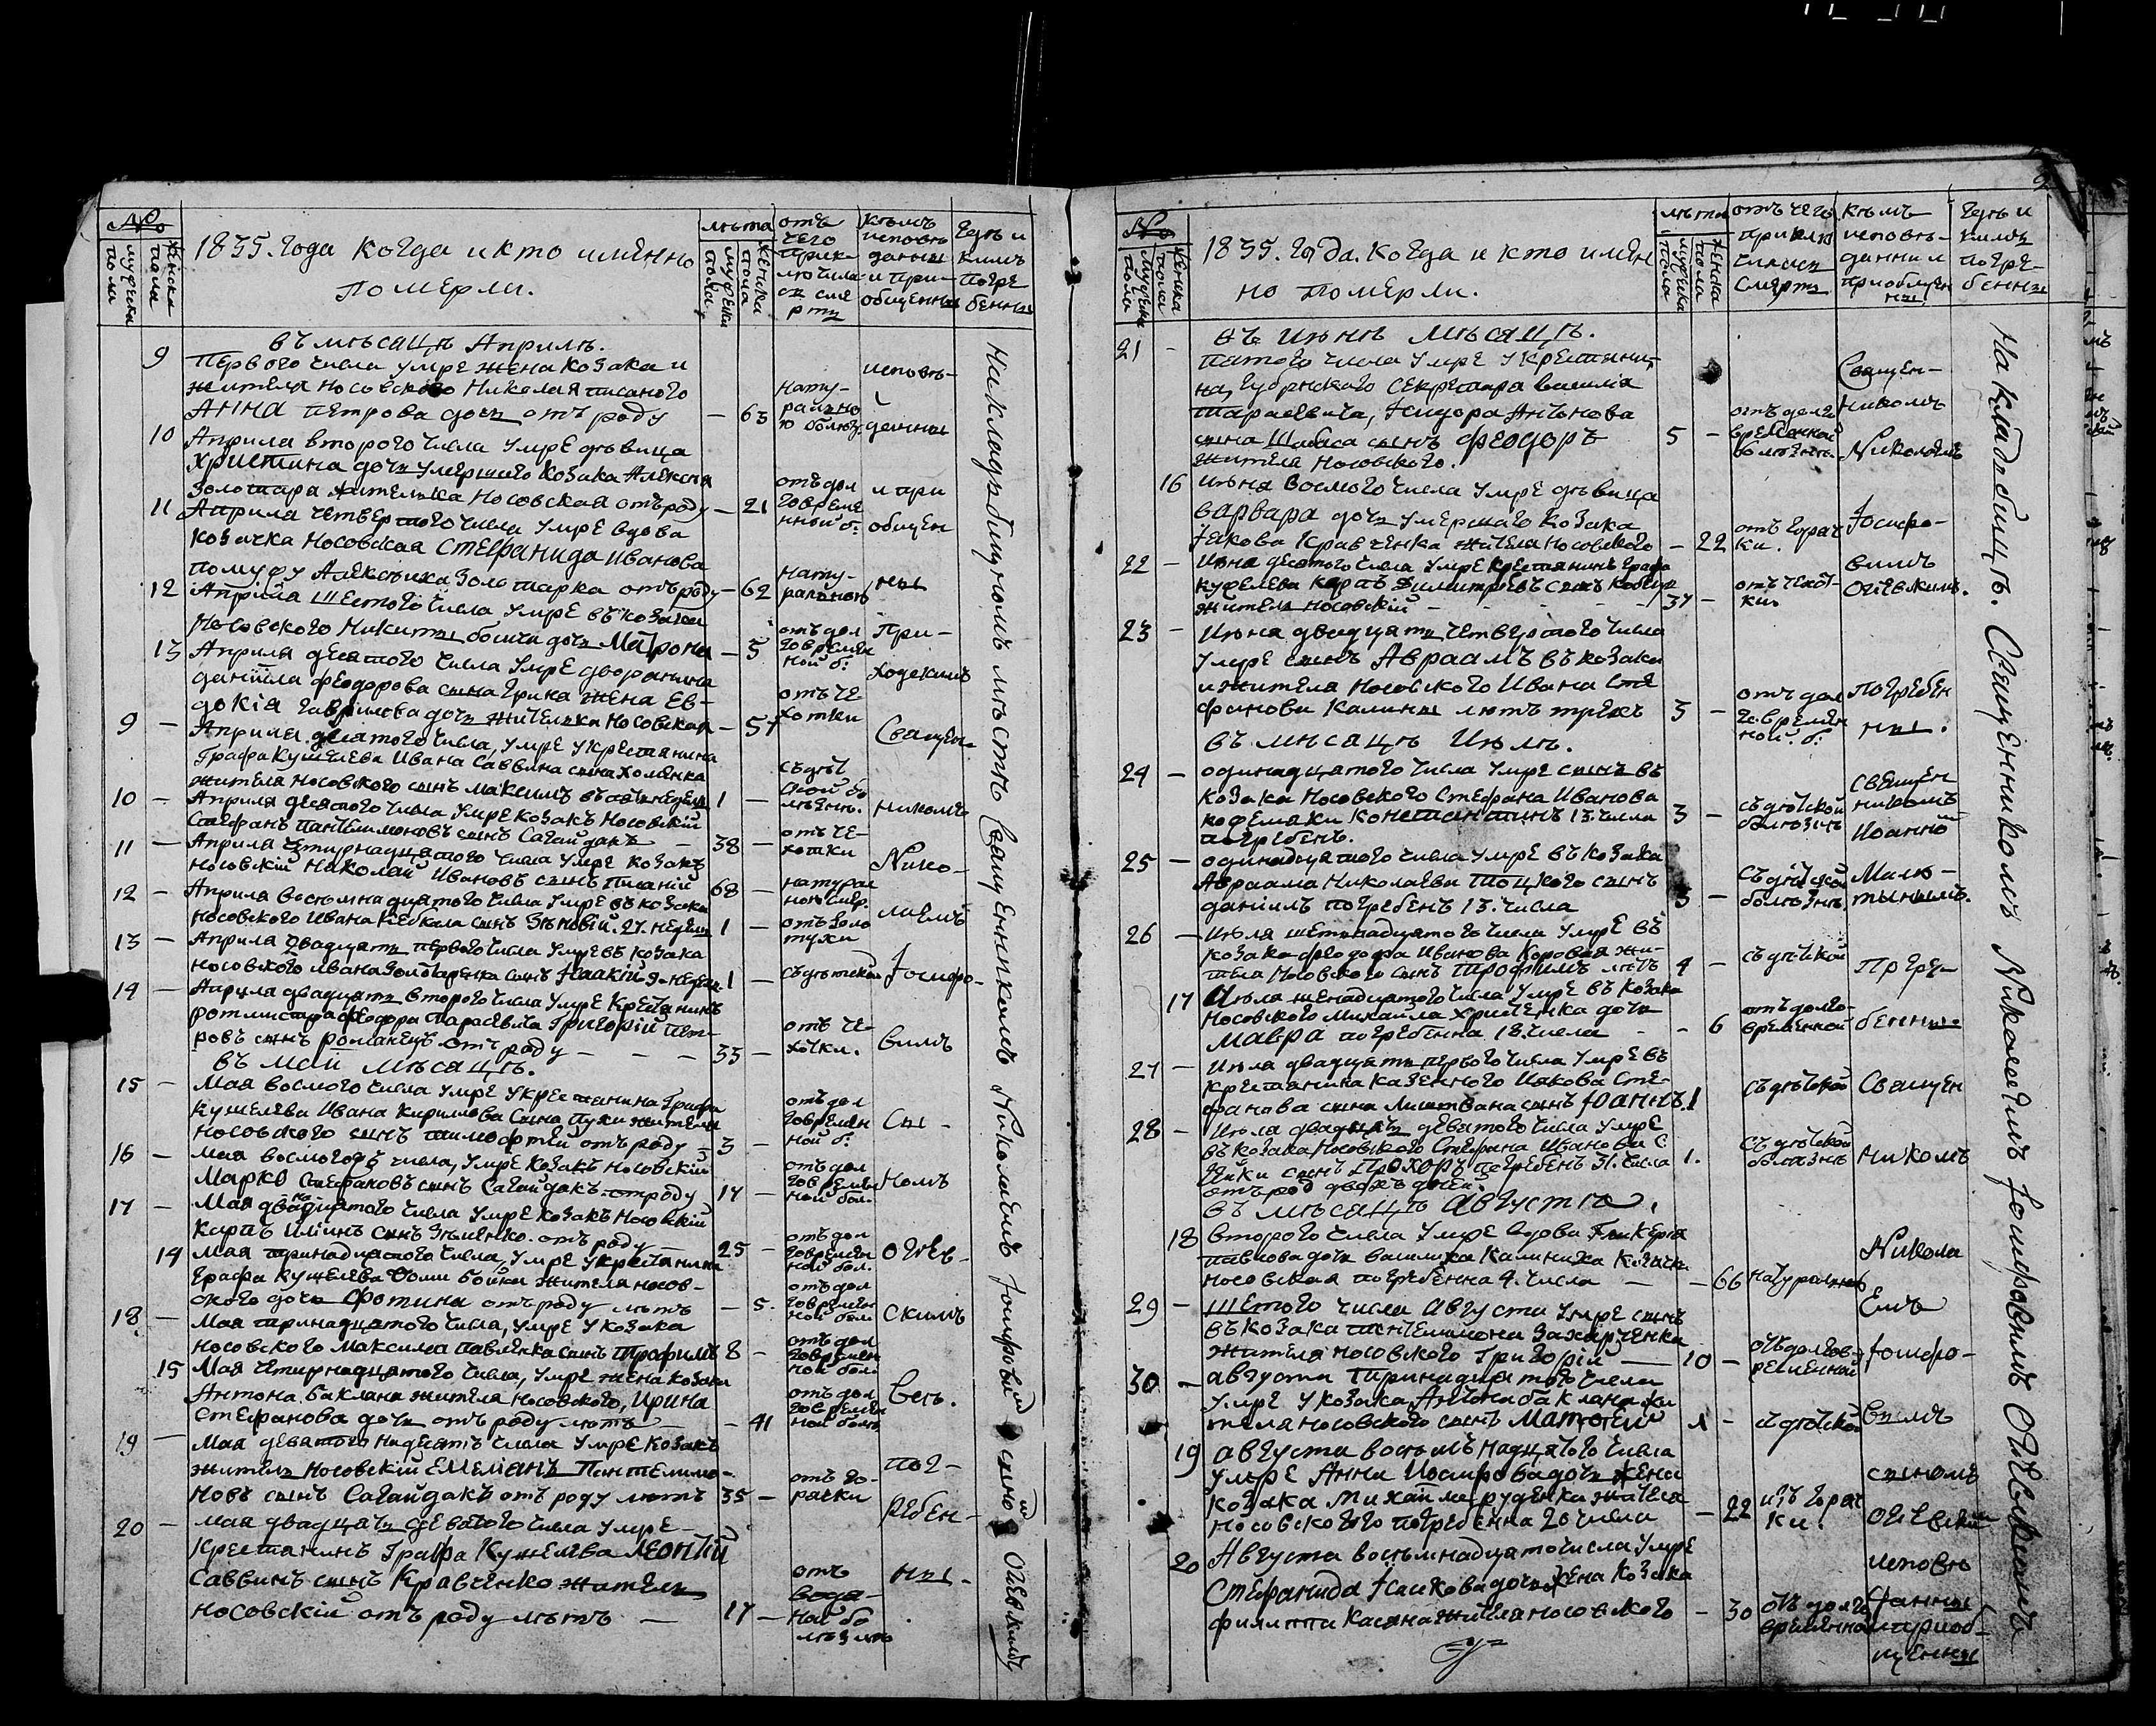 №
мужеска пола
женска пола
1835. Года когда и кто имянно
померли.
лѣта
мужеска пола
женска пола
отъ
чего
прик-
лючила-
сы сме
рты
кѣмъ
исповѣ
даны
и при-
общенны
Гдѣ и
кимъ
погре
бенны
въ мѣсацѣ Априлѣ.
9 первого числа умре жена козака и
жителя носовского Николая писаного
Анна Петрова дочь отъ роду — 63
нату-
рално
ю болѣз.
10 Априла второго числа умре дѣвица
Христина дочь умершего козака Алексея
Золотара жителька Носовская отъ роду — 21
отъ дол
говреме
нной б:
11 Априла четвертого числа умре вдова
козачка Носовская Стефанида Иванова
по мужу Алексѣиха Золотарка отъ роду — 62
нату-
ралною
12 Априла шестого числа умре въ козака
Носовского Никиты боича дочь Матрона — 5
отъ дол
говремен
ной б:
13 Априля десятого числа умре дворянина
данїила феодорова сына Грина жена Ев-
докїя Гаврилова дочь жителька Носовская — 57
отъ че-
хотки
9 — Априля десятого числа, умре у крестянина
Графа Кушелева Ивана Саввина сына Хоменка
жителя Носовского сынъ максимъ 1 —
съ дѣт
ской бо
лѣзни.
10 — Априля десятого числа умре козакъ Носовскїй
Стефанъ Пантелимоновъ сынъ Сагайдакъ — 38 —
отъ че-
хотки
11 — Априла четирнадцатого числа умре козакъ
Носовскїй Николай Ивановъ сынъ Писаній 68 —
натурал
ною смер.
12 — Априла восемнадцятого числа умре въ козака
Носовского Ивана сынъ Зѣновїй. 27. недель 1 —
отъ золо
тухи
13 — Априла двадцяты первого числа умре въ козака
Носовского Ивана Золотаренка сынъ Їсаакїй 9. недель 1 —
съ дѣтской
14 — Априла двадцяты второго числа умре крестянинъ
ротмистра феодора Тарасевича Григорїй Пет-
ровъ сынъ романецъ отъ роду — — — 33 —
отъ че-
хотки.
въ май мѣсацѣ.
15 — Мая восмого числа умре у крестянина Графа
Кушелева Ивана Кирилова сына Пухи жителя
Носовского сынъ тимофтей отъ роду — 3 —
отъ дол
говремен
ной б:
16 — мая восмогодъ числа, умре козакъ Носовскїй
Марко Стефановъ сынъ Сагайдакъ отроду 17 —
отъ дол
говремен
ной бол.
17 — Мая двадцятого числа умре козакъ Носовскїй
Карпъ Илїинъ сынъ Зѣненко отъ роду 25 —
отъ дол
говремен
ной бол.
14 мая тринадцатого числа, умре у крестянина
Графа Кушелева Фоми бойки жителя носов-
ского дочь Фотина отъ роду лѣтъ — 5.
отъ дол
говремен
ной бол.
18 — Мая тринадцатого числа, умре у козака
Носовского Максима Павленка сынъ Трофимъ 8 —
отъ дол
говремен
ной бол.
15 Мая четирнадцатого числа, умре жена козака
Антона баклана жителя Носовского, Ирина
Стефанова дочь отъ роду лѣтъ — — 41
отъ дол
говремен
ной бол.
19 — Мая деватого надесять числа умре козакъ
житель Носовскїй Емелианъ Пантелимо-
новъ сынъ Сагайдакъ отъ роду лѣтъ 35 —
отъ го-
рачки
20 — мая двадцать деватого числа умре
крестянинъ Графа Кушелева Леонтїй
Саввинъ сынъ Кравченко житель
носовскїй отъ роду лѣтъ — 17 —
отъ
вода-
ной бо
лѣзлю
исповѣ-
данны
и при
общен
ны
При-
ходскимъ
Священ-
никомъ
Нико-
лаемъ
Їосифо-
вимъ
Сы-
номъ
Огїев-
скимъ
весь.
пог-
ребен-
ны.
На кладъбищномъ мѣстѣ Священникомъ Николаемъ Їосифовимъ сыномъ Огїевскимъ
№
мужеска пола
женска пола
1835. года. когда и кто имен
но померли.
лѣта
мужеска пола
женска пола
отъ чего
приклю
чилась
смерты
кѣмъ
исповѣ-
данни и
приобщен
ны
Гдѣ и
кимъ
погре-
бенны
въ июнѣ мѣсацѣ.
21 — пятого числа умре у крестяни-
на, Губернского секретара василїя
тарасевича, Їсидора Антонова
сына Шабаса сынъ феодоръ 5 —
жителя Носовского.
отъ долго
временной
болѣзни.
16 июня восмого числа умре дѣвица
варвара дочь умершаго козака
Їакова кравченка жителя Носовского — 22
отъ горач
ки.
22 — июня десятого числа умре крестянинъ Графа
кушелева карпъ димитревъ сынъ
житель Носовскїй — — — 37 —
отъ чехот-
ки.
23 — Июня двадцяты четвертого числа
умре сынъ Авраамъ въ козака
и жителя Носовского Ивана Сте
фанови Калины лѣтъ трехъ 3 —
отъ дол
говремен
ной. б:
въ мѣсацѣ Июлѣ.
24 — одинадцатого числа умре сынъ въ
козака Носовского Стефана Иванова
кофемаки Константинъ 13. числа 3 —
погребенъ.
съ дѣтской
болѣзни
25 — одинадцатого числа умре въ козака
Авраама Николаева Тоцкого сынъ
данїилъ погребенъ 13. числа 3 —
съ дѣтской
болѣзни.
26 — Июля шетнадцатого числа умре въ
козака феодора Иванова Коровая жи-
теля Носовского сынъ Трофимъ лѣтъ 4 —
съ дѣтской
17 Июля шенадцатого числа умре въ козака
Носовского Михайла Христенка дочь
мавра погребенна 18. числа — — 6
отъ долго-
временной
27 — Июля двадцаты первого числа умре въ
крестянина казенного Иакова Сте-
фанова сина Лиштвана сынъ Їоаннъ. 1
съ дѣтской
28 — Июля двадцать деватого числа умре
въ козака Носовского Стефана Иванови С
сынъ Прохоръ погребенъ 31. числа 1.
отъ род двохъ дней.
съ дѣтской
болѣзнѣ
въ мѣсацѣ Августѣ.
18 второго числа умре вдова Гликерїя
павлова дочь василиха Калиниха козачка
носовская погребенна 4. числа — — 66
натуралною
29 — шетого числа Августа умре сынъ
въ козака пантелимона Захарченка
жителя носовского Григорїй — 10 —
отъ долгов-
ременной
30 — августа тиринадцатого числа
умре у козака Антона баклана жи
теля носовского сынъ Матвей 1 —
съ дѣтской
19 августа восъмъ надцятого числа
умре Анна Иосифова дочь жена
козака михайла руденка жителя
Носовского погребенна 20 числа — 22
изъ горач
ки.
20 Августа восъмнадцаточисла умре
Стефанида Їакова дочь жена козака
филиппа Касяна жителя носовского — 30
отъ долго
временной
Священ-
никомъ
Николаемъ
Їосифо-
вимъ
Огїевскимъ.
погребен
ны.
свещен
никомъ
Иоанно
Малю-
тынымъ.
погре-
бенны.
Свящон
никомъ
Никола
емъ
Їосифо-
вимъ
сыномъ
Огїевским
исповѣ
данны
и приоб-
щенны
На кладвбищѣ. Священникомъ Николаемъ Їосифовимъ Огїевскимъ